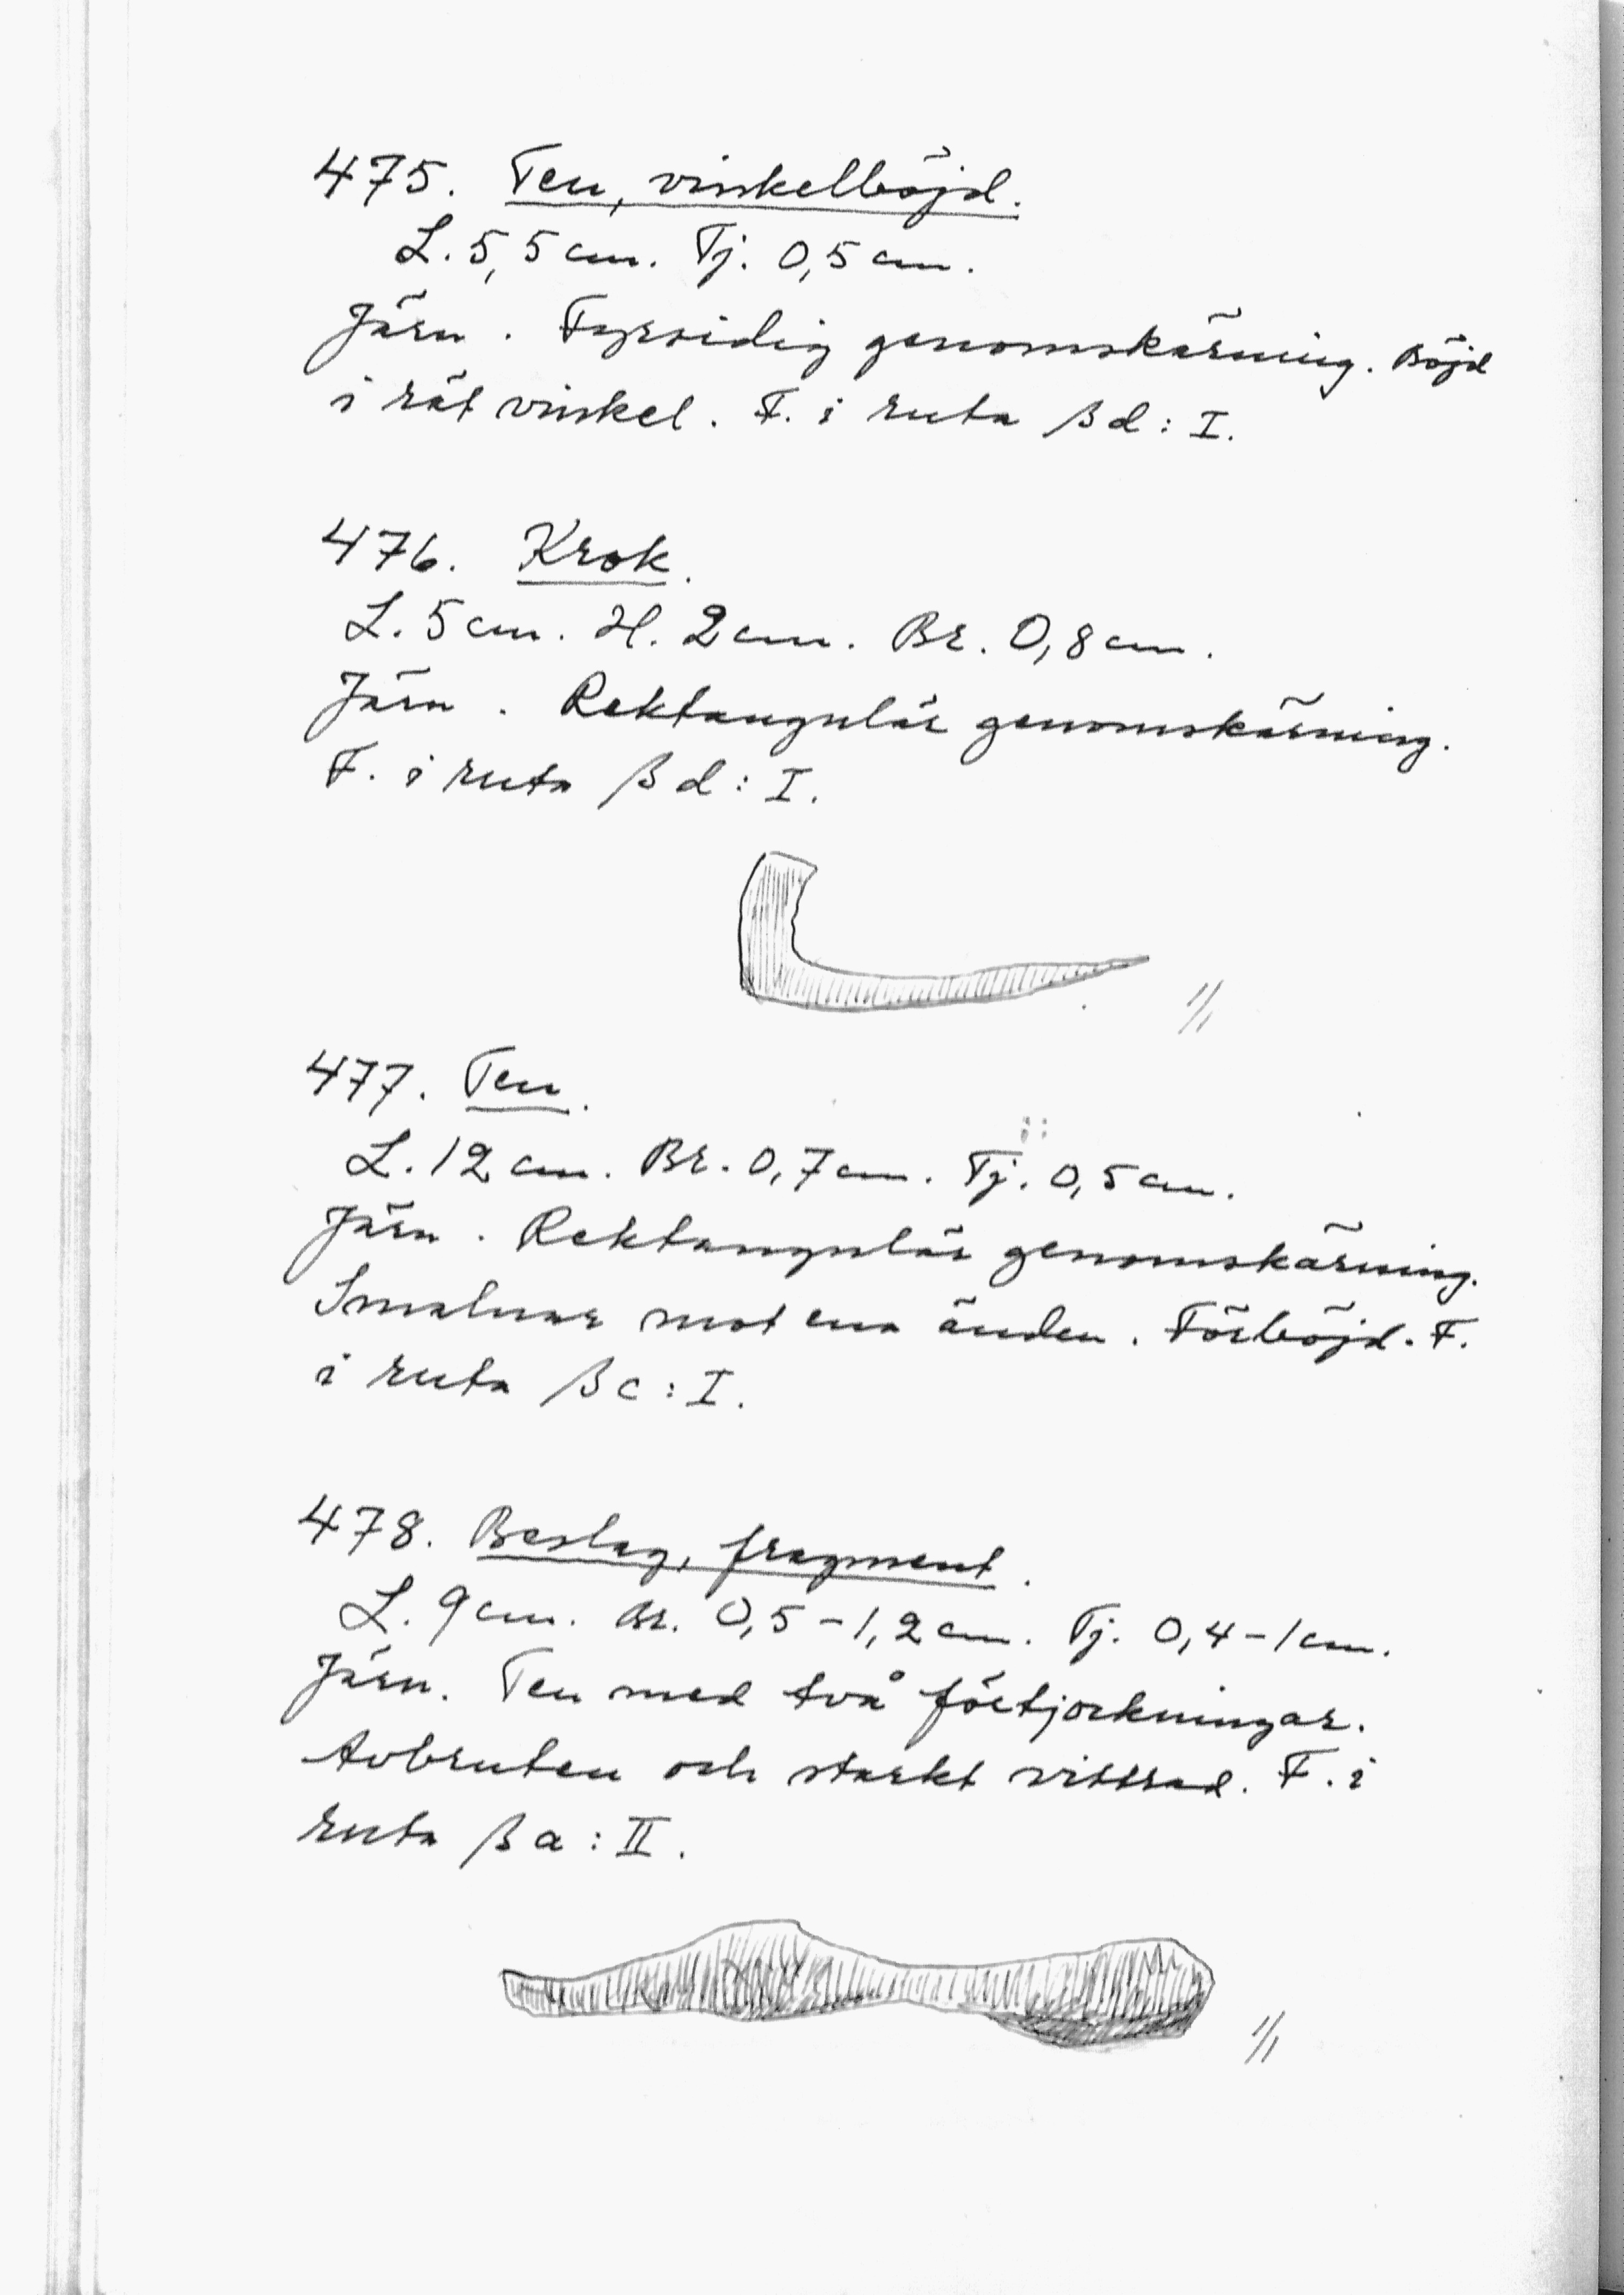 475. Ten, vinkelböjd.
L. 5,5 cm. Tj. 0,5 cm.
Järn. Fyrsidig genomskärning. Böjd
i rät vinkel. F. i ruta β d : I.
476. Krok.
L. 5 cm. H. 2 cm. Br. 0,8 cm.
Järn. Rektangulär genomskärning.
F. i ruta β d : I.
1/1
477. Ten.
L. 12 cm. Br. 0,7 cm. Tj. 0,5 cm.
Järn. Rektangulär genomskärning.
Smalnar mot ena änden. Förböjd. F.
i ruta β c : I.
478. Beslag, fragment.
L. 9 cm. Br. 0,5 – 1,2 cm. Tj. 0,4 – 1 cm.
Järn. Ten med två förtjockningar.
Avbruten och starkt vittrad. F. i
ruta β a : II.
1/1